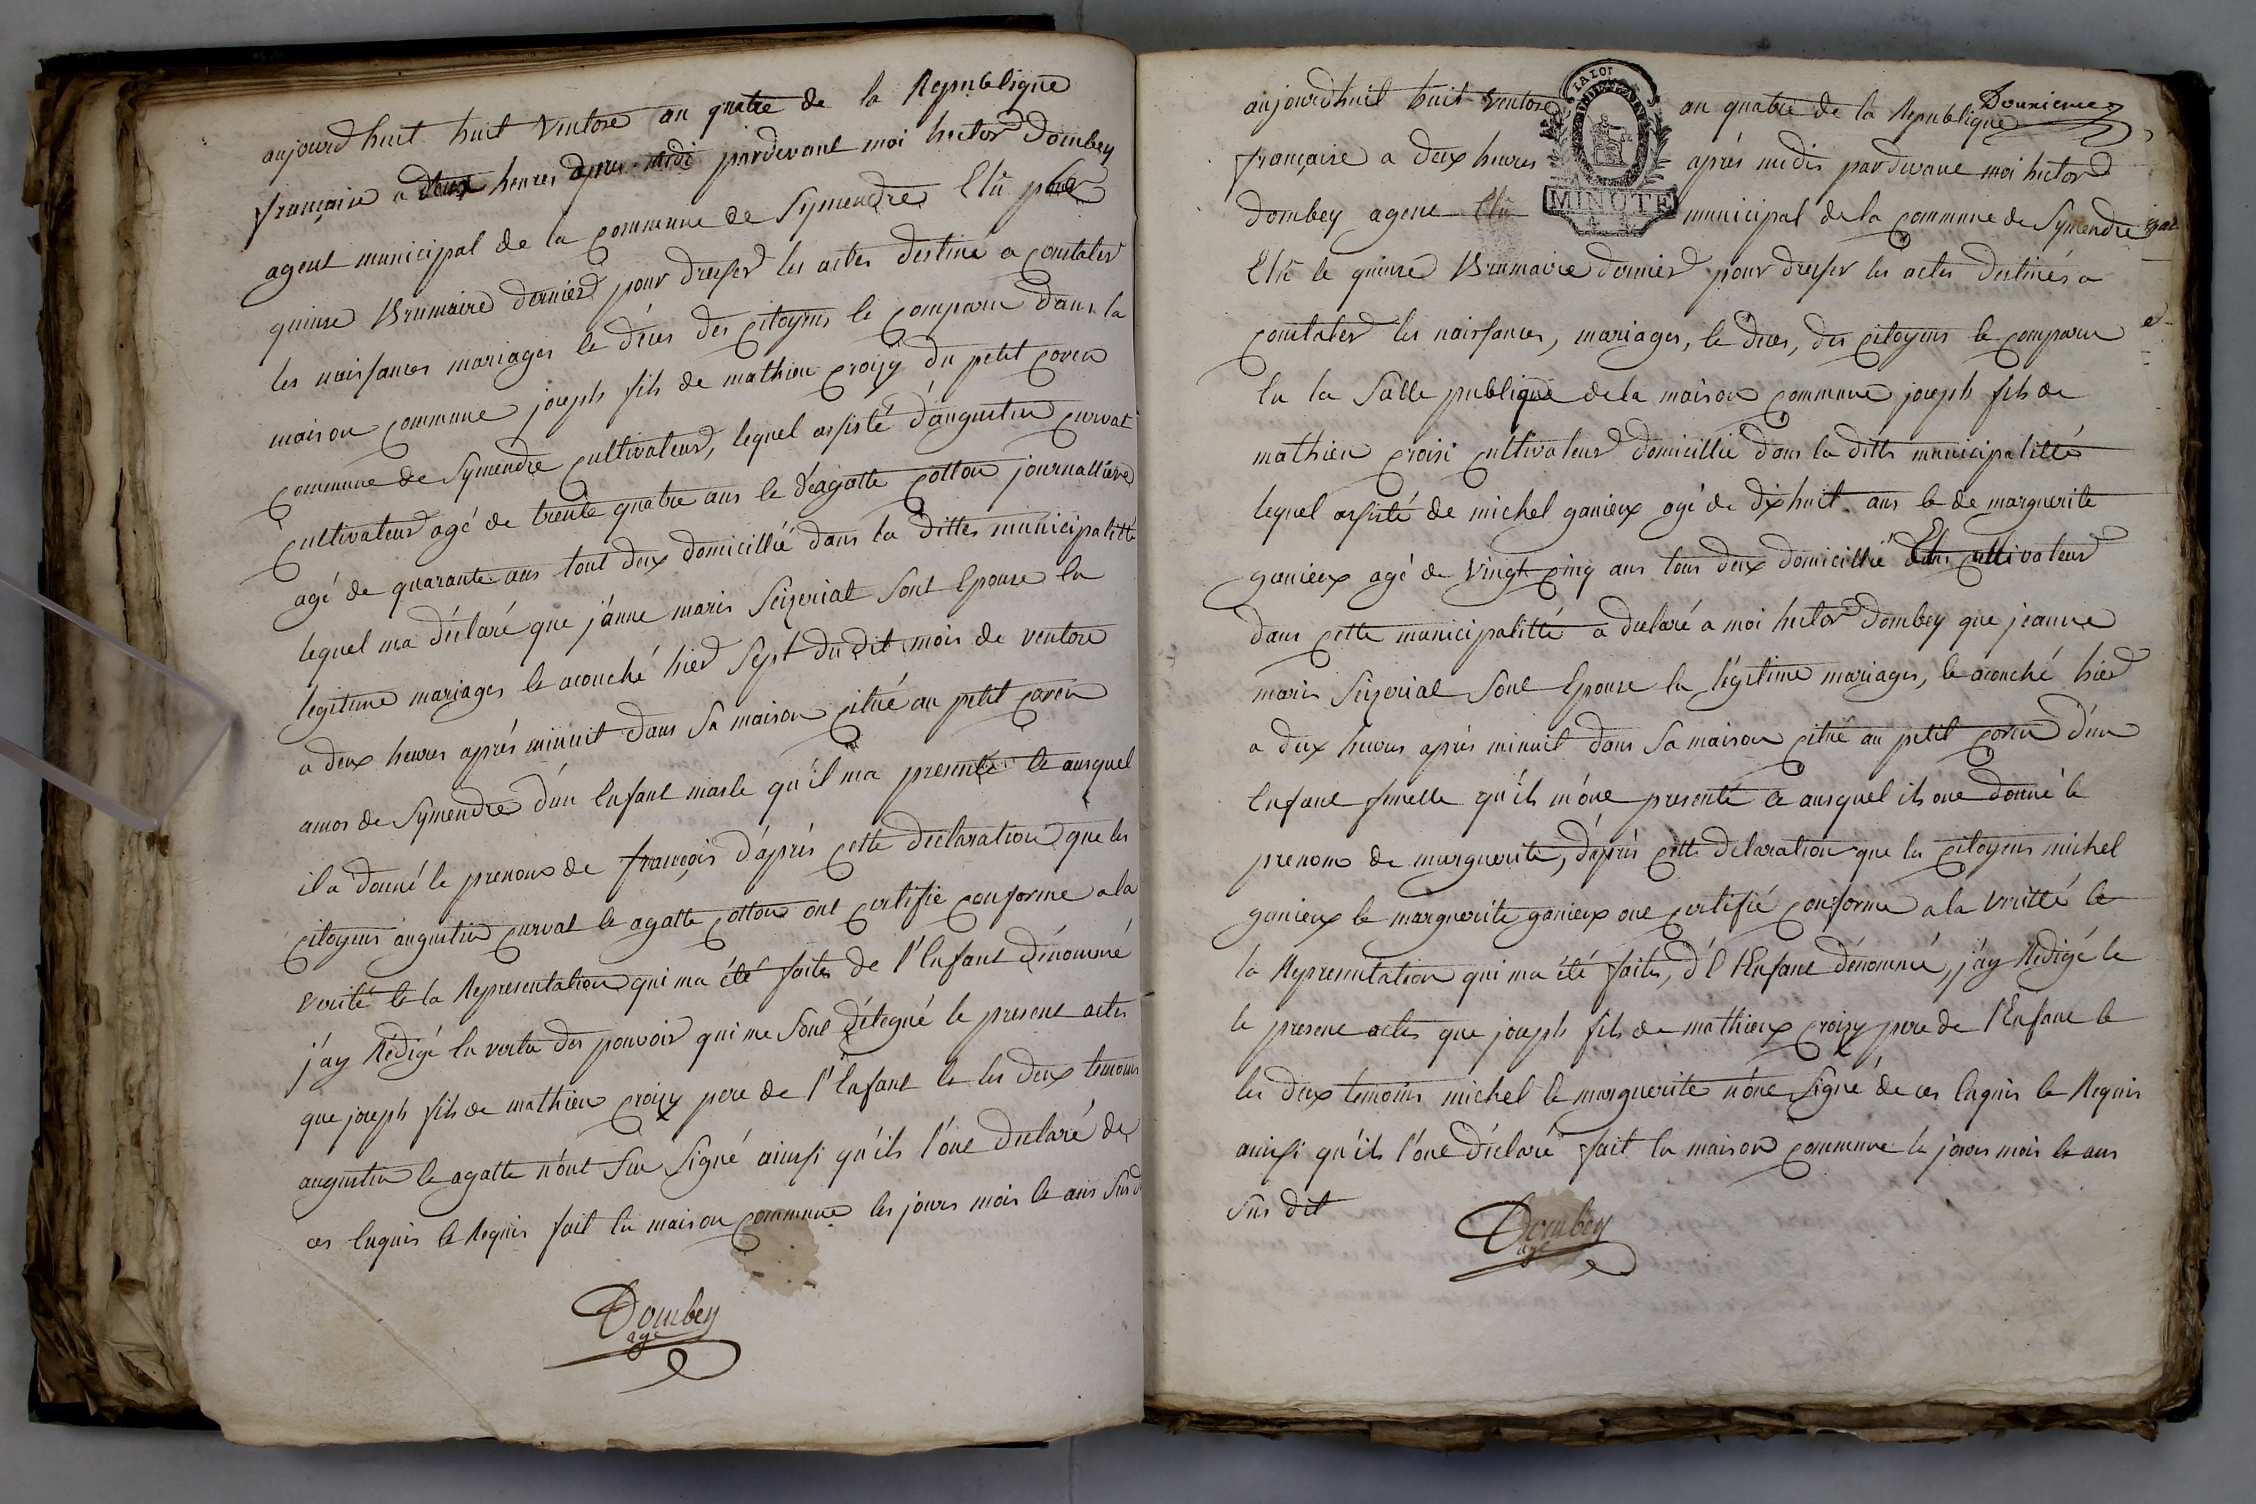 aujourdhuit huit Ventose an quatre de la Republique
française a deux heures apres midi pardevant moi hector Dombey
agent municipal de la commune de Symendre Elû le
quinse Brumaire dernier pour dresser les actes destiné a constater
les naissances mariages le décés des citoyens le comparu dans la
maison commune joseph fils de mathieu croisy du petit coren
commune de Symendre cultivateur, lequel assisté d'augustin curvat
cultivateur agé de trente quatre ans le d'agatte cotton journalliere
agé de quarante ans tout deux domicillié dans la dittes municipalitté
lequel ma déclaré que j'anne marie Seizeriat sont Epouse en
legitime mariages le acouché hier Sept du dit mois de ventose
a deux heures aprés minuit dans sa maison citué au petit coren
amos de Symendre d'un Enfant masle qu'il ma presenté le ausquel
il a donné le prenoms de françois d'aprés cette declaration que les
citoyens augustin curvat le agatte cotton ont certifié conforme a la
verité le la Representation qui ma été faites de l'Enfant dénommé
j'ay Rédigé en vertu des pouvoir qui me sont délegué le present actes
que joseph fils de mathieu croisy pere de l'Enfant le les deux temoins
augustin le agatte n'ont Signé ainssi qu'ils l'ont declaré de
ces Enquis le Requis fait en maison commune les jours mois le ans Susd
Dombey
age
Dounieme
aujourdhuit huit Ventose an quatre de la Republique
LA LOI
MINUTE
française a deux heures aprés midis pardevant moi hector
Dombey agent Elû municipal de la commune de Symendre
Elû le quinse Brumaire dernier pour dresser les actes destinés a
constater les naissances, mariages, le deces, des citoyens le comparu
En la Salle publique de la maison commune joseph fils de
mathieu croisi cultivateur domicillié dans la ditte municipalitté
lequel assisté de michel ganieux agé de dix huit ans le de marguerite
ganieux agé de vingt cinq ans tous deux domicillié cultivateur
dans cette municipalitté a declaré a moi hector Dombey que jeanne
marie Seizeriat sont Epouse en légitime mariages, le acouché hier
a deux heures aprés minuit dans sa maison citué au petit coren d'un
Enfant femelle qu'ils m'ont presenté le ausquel ils ont donné le
prenoms de marguerite, d'aprés cette delaration que les citoyens michel
ganieux le marguerite ganieux ont certifié conforme a la veritté le
la Representation qui ma été faites, d'E l'Enfant dénommé, j'ay Rédigé le
le present actes que joseph fils de mathieux croisy pere de l'Enfant le
les deux temoins michel le marguerite n'ont Signé de ces Enquis le Requis
ainssi qu'ils l'ont déclaré fait en maison commune le jours mois le ans
Sus dit
Dombey
age